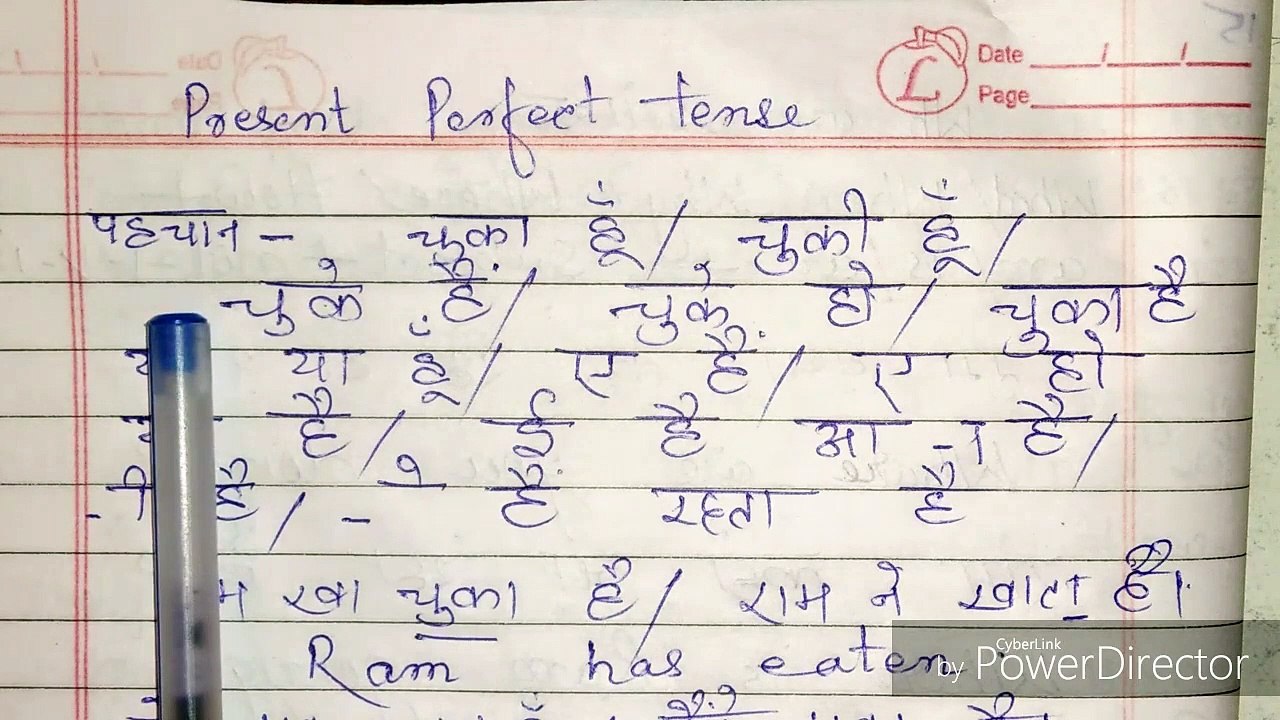 Date / /
Page
Present Perfect tense
पहचान - चुका हूँ / चुकी हूँ /
चुके हैं / चुके हो / चुका है
या हूँ / ए हैं / ए हो
है / ई है आ -ा है /
-ी है / - े हैं रहता है
खा चुका है / राम ने खाया है।
Ram has eaten.
CyberLink
by PowerDirector